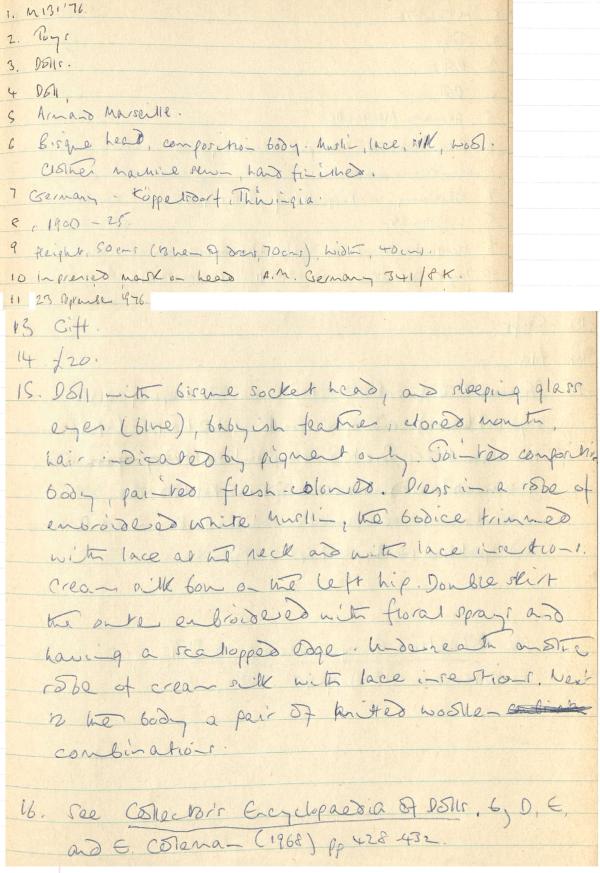 1. M131'76
2. Toys
3. Dolls.
4 Doll,
5 Armand Marseille.
6 Bisque head, composition body. Muslin, lace, silk, wool.
Clothes machine sewn, hand finished.
7 Germany - Köppelsdorf, Thüringia.
8 c. 1900 - 25.
9 Height, 50cms (to hem of dress, 70cms), width, 40cms.
10 Impressed mark on head A.M. Germany 341/8K.
11 23 September 1976
13 Gift.
14 £20.
15. Doll with bisque socket head, and sleeping glass
eyes (blue), babyish features, closed mouth,
hair indicated by pigment only. Jointed composition
body, painted flesh-coloured. Dress in a robe of
embroidered white muslin, the bodice trimmed
with lace at the neck and with lace insertions.
Cream silk bow on the left hip. Double skirt
the outer embroidered with floral sprays and
having a scalloped edge. Underneath another
robe of cream silk with lace insertions. Next
to the body a pair of knitted woollen
combinations.
16. See Collector's Encyclopaedia of Dolls, by D, E,
and E. Coleman (1968) pp 428-432.